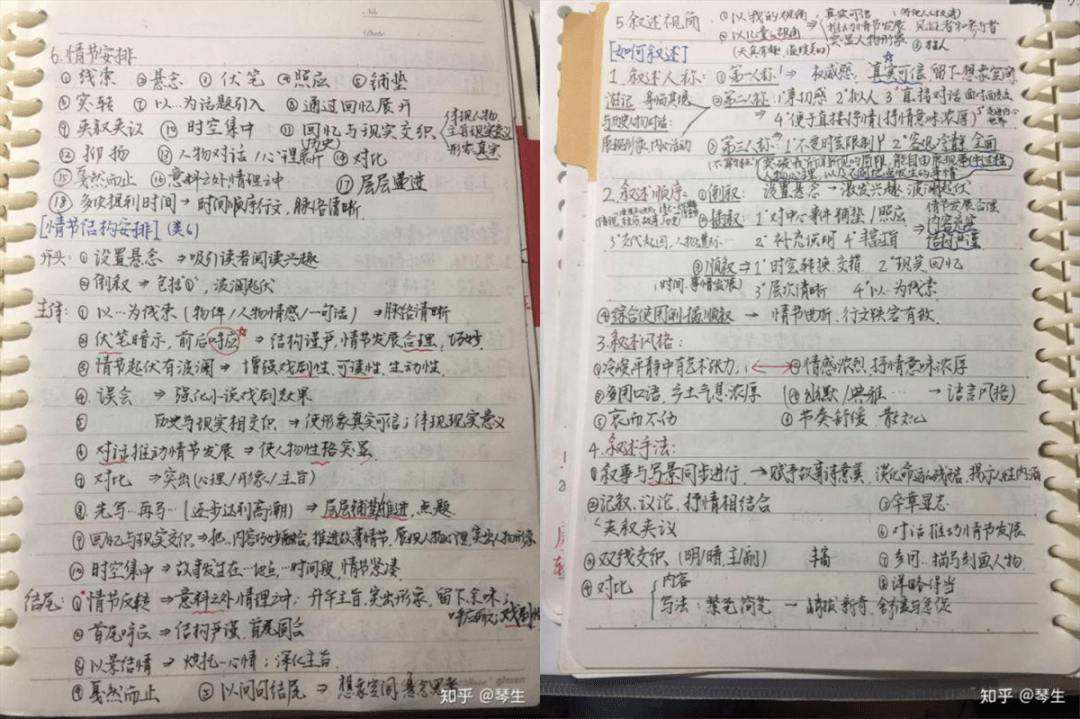 6.情节安排
①线索 ②悬念 ③伏笔 ④照应 ⑤铺垫
⑥突转 ⑦以…为话题引入 ⑧通过回忆展开
⑨夹叙夹议 ⑩时空集中 ⑪回忆与现实交织
(历史)
⑫抑扬 ⑬人物对话/心理 ⑭对比
⑮戛然而止 ⑯意料之外情理之中 ⑰层层递进
⑱多次提到时间⇒时间顺序行文,脉络清晰
[情节结构安排](类6)
开头:①设置悬念⇒吸引读者阅读兴趣
②倒叙⇒包括①,波澜起伏
主体:①以…为线索(物件/人物情感/一句话)⇒脉络清晰
②伏笔暗示,前后呼应⇒结构谨严,情节发展合理,巧妙
③情节起伏有波澜⇒增强戏剧性,可读性,生动性
④误会⇒强化小说戏剧效果
⑤历史与现实相交织⇒使形象真实可信;体现现实意义
⑥对话推动情节发展⇒使人物性格突显
⑦对比⇒突出(心理/形象/主旨)
⑧先写…再写…(逐步达到高潮)⇒层层铺垫推进,点题
⑨回忆与现实交织⇒把…内容巧妙融合,推进故事情节,展现人物心理,突出人物形象
⑩时空集中⇒故事发生在一地点,一时间段,情节紧凑
结尾:①情节反转⇒意料之外情理之中;升华主旨,突出形象,留下余味;
②首尾呼应⇒结构严谨,首尾圆合
③以景结情⇒烘托…心情;深化主旨
④戛然而止 ⑤以问句结尾⇒想象空间,悬念思考
知乎 @琴生
5.叙述视角 ①以我的视角⇒真实可信
②以儿童的视角 推动情节发展,见证者和参与者
突显人物形象
[如何叙述]
1.叙述人称:①第一人称⇒权威感,真实可信,留下想象空间
②第二人称⇒1°亲切感 2°拟人 3°直接对话
与历史人物对话: ⇒4°便于直接抒情(抒情意味浓厚)
展现形象,内心活动 ③第三人称⇒1°不受时空限制 2°客观冷静,全面
2.叙述顺序:①倒叙:设置悬念→激发兴趣,波澜起伏
②插叙:1°对中心事件铺垫/照应 情节发展合理
2°补充说明 内容充实
结构严谨
③顺叙⇒1°时空转换,交错 2°现实回忆
(时间,事情发展) 3°层次清晰 4°以…为线索
④综合使用倒插顺叙→情节曲折,行文跌宕有致
3.叙述风格:
①冷峻平静中有艺术张力 ②情感浓烈,抒情意味浓厚
③多用口语,乡土气息浓厚 (④幽默/典雅…→语言风格)
⑤哀而不伤 ⑥节奏舒缓 散文化
4.叙述手法:
①叙事与写景同步进行→赋予故事诗意美
②记叙、议论、抒情相结合 ⑤卒章显志
夹叙夹议 ⑥对话推动情节发展
③双线交织(明/暗,主/副) ⑦多用…描写刻画人物
④对比 内容 ⑧详略得当
写法:繁笔简笔
知乎 @琴生